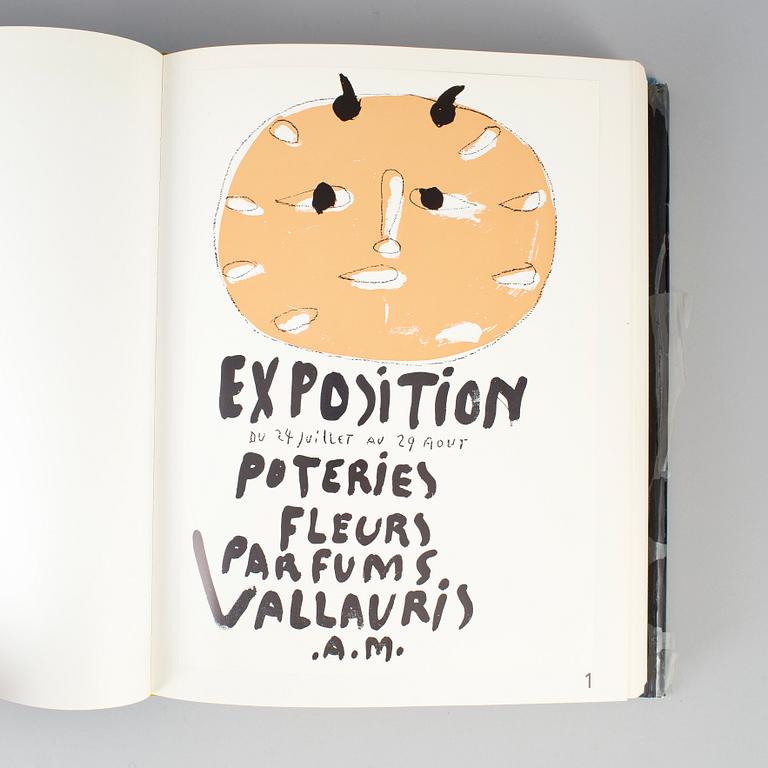 EXPOSITION
DU 24 JUILLET AU 29 AOUT
POTERIES
FLEURS
PARFUMS
VALLAURIS
.A.M.
1